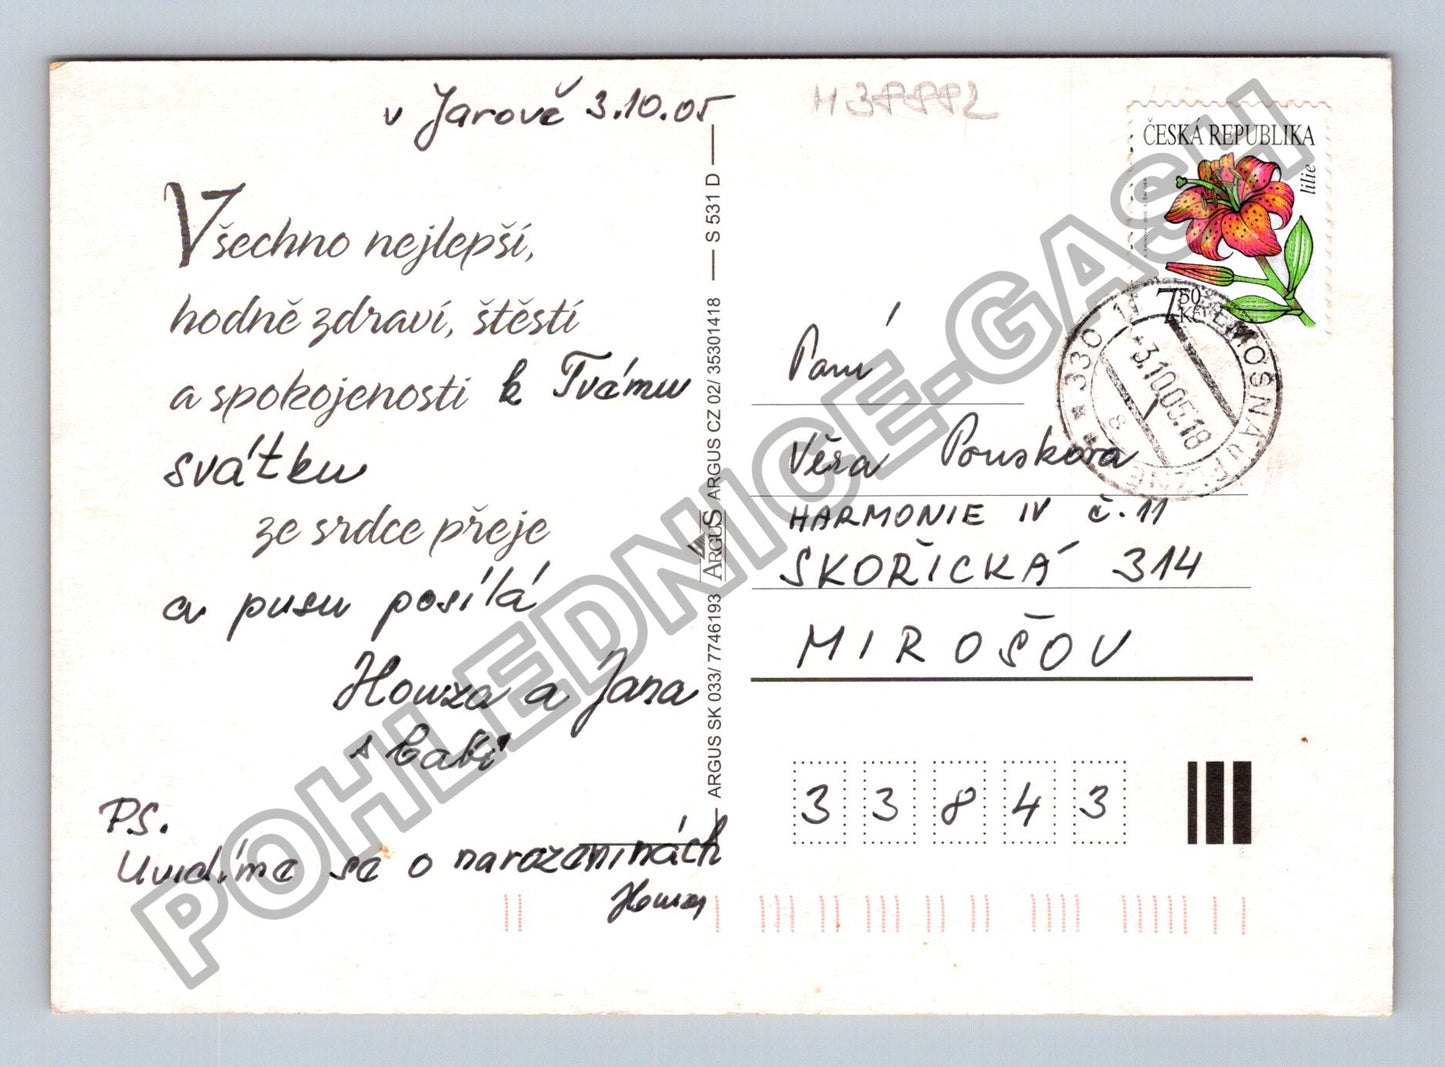 v Jarově 3.10.05
Všechno nejlepší,
hodně zdraví, štěstí
a spokojenosti k Tvému
svátku
ze srdce přeje
a pusu posílá
Honza a Jana
s
P.S.
Uvidíme se o narozeninách
Honza
ARGUS SK 033/ 7746193 ARGUS ARGUS CZ 02/ 35301418 S 531 D
M38882
ČESKÁ REPUBLIKA
lilie
7,50
Kč
330 11 TŘEMOŠNÁ U PLZNĚ
-3.10.05.18
8
Paní
Věra Pouskova
HARMONIE IV č.11
SKOŘICKÁ 314
MIROŠOV
3 3 8 4 3
POHLEDNICE-GASH